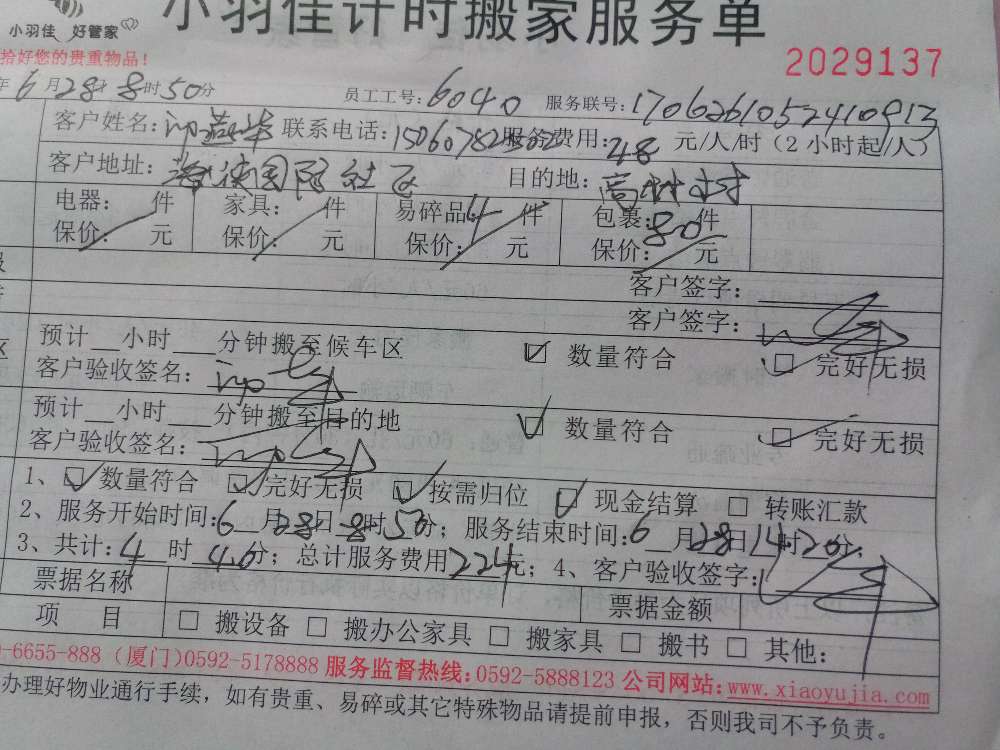 小羽佳 好管家
小羽佳计时搬家服务单
拾好您的贵重物品！
2029137
年6月28日8时50分 员工工号：6040 服务联号：1706261052410913
客户姓名： 联系电话： 服务费用：48 元/人/时（2小时起/人）
客户地址：海沧国际社区 目的地：高林村
电器： 件 家具： 件 易碎品4件 包裹：80件
保价： 元 保价： 元 保价： 元 保价： 元
客户签字：
客户签字：
预计__小时___分钟搬至候车区 ☑ 数量符合 ☑ 完好无损
客户验收签名：
预计__小时___分钟搬至目的地 ☑ 数量符合 ☑ 完好无损
客户验收签名：
1、☑数量符合 ☑完好无损 ☑按需归位 ☑现金结算 □ 转账汇款
2、服务开始时间：6月28日8时50分；服务结束时间：6月28日14时20分；
3、共计：4时40分；总计服务费用224元；4、客户验收签字：
票据名称 票据金额
项 目 □ 搬设备 □ 搬办公家具 □ 搬家具 □ 搬书 □ 其他：
-6655-888 (厦门)0592-5178888 服务监督热线：0592-5888123 公司网站：www.xiaoyujia.com
办理好物业通行手续，如有贵重、易碎或其它特殊物品请提前申报，否则我司不予负责。